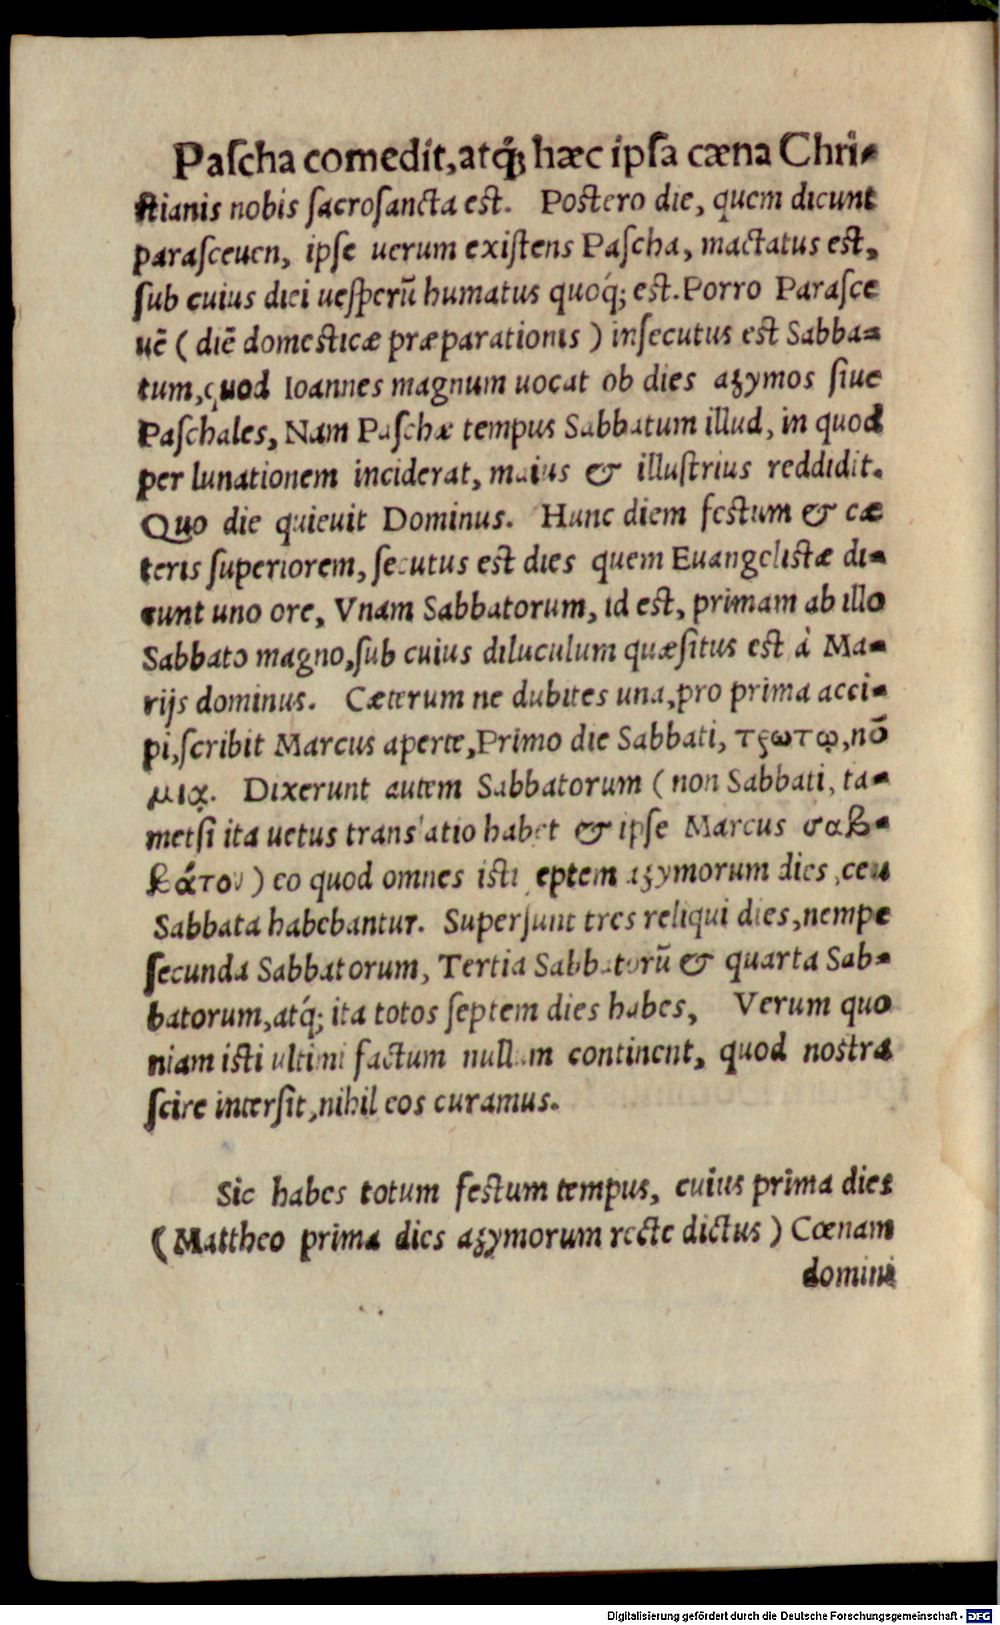 Paſcha comedit, atq́; hæc ipſa cæna Chri-
ſtianis nobis ſacroſancta est. Postero die, quem dicunt
paraſceuen, ipſe uerum exiſtens Paſcha, mactatus est,
ſub cuius diei ueſperū humatus quoq́; est. Porro Paraſce
uē ( diē domesticæ præparationis ) inſecutus est Sabba-
tum, quod Ioannes magnum uocat ob dies azymos ſiue
Paſchales, Nam Paſchæ tempus Sabbatum illud, in quod
per lunationem inciderat, maius & illuſtrius reddidit.
Quo die quieuit Dominus. Hunc diem feſtum & cæ
teris ſuperiorem, ſecutus est dies quem Euangelistæ di-
cunt uno ore, Vnam Sabbatorum, id est, primam ab illo
Sabbato magno, ſub cuius diluculum quæſitus est à Ma-
rijs dominus. Cæterum ne dubites una, pro prima acci-
pi, ſcribit Marcus aperte, Primo die Sabbati, πρωτῳ, nō
μιᾳ. Dixerunt autem Sabbatorum ( non Sabbati, ta-
metſi ita uetus translatio habet & ipſe Marcus σαβ-
βάτου ) eo quod omnes isti ſeptem azymorum dies, ceu
Sabbata habebantur. Superſunt tres reliqui dies, nempe
ſecunda Sabbatorum, Tertia Sabbatorū & quarta Sab-
batorum, atq́; ita totos ſeptem dies habes, Verum quo
niam isti ultimi factum nullum continent, quod nostra
ſcire interſit, nihil eos curamus.
Sic habes totum festum tempus, cuius prima dies
( Mattheo prima dies azymorum recte dictus ) Cœnam
domini
Digitalisierung gefördert durch die Deutsche Forschungsgemeinschaft - DFG